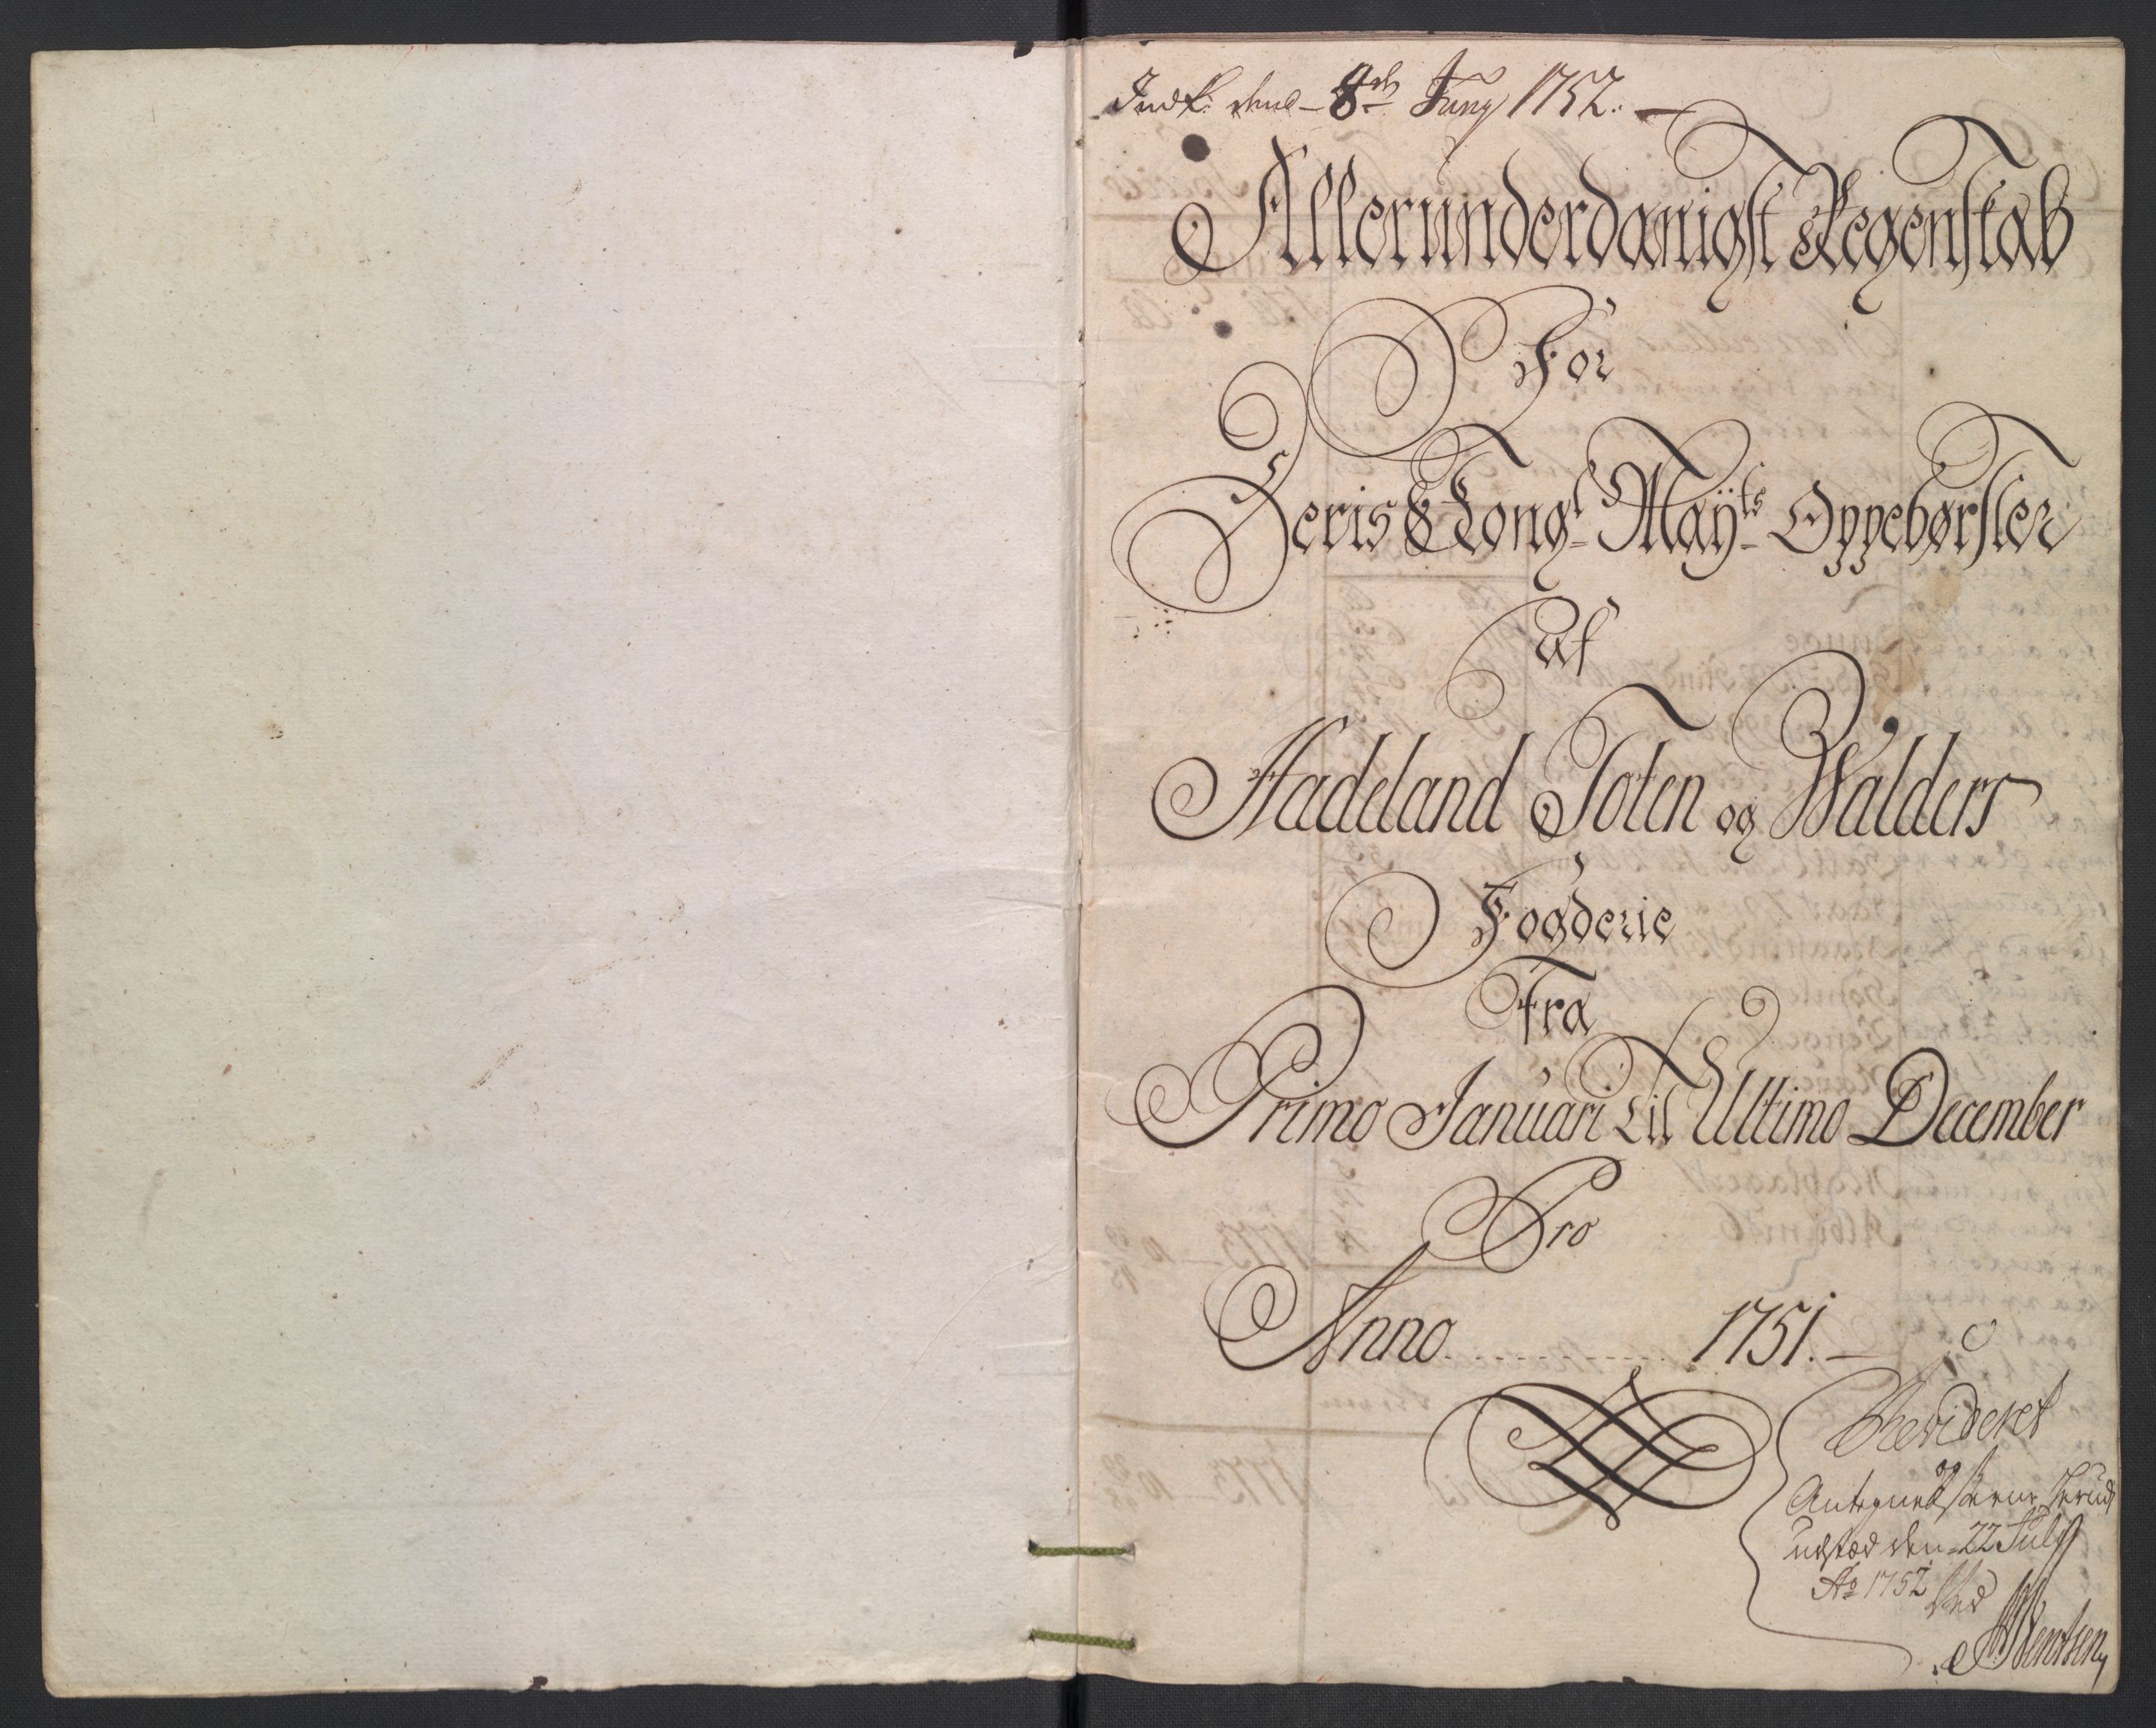 Indk: den 8de Juny 1752.
Allerunderdanigst Regenskab
For
Deris Kongl Mayts Oppebørsler
Af
Hadeland Toten og Walders
Fogderie
Fra
Primo Januari til Ultimo December
Pro
Anno 1751.
Revideret
og
Antegnelserne herud
udsted den 22 July
Ao 1752 Ved